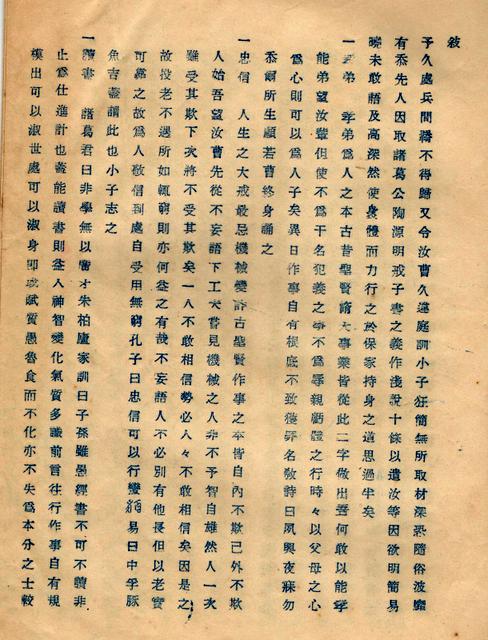 敍
予久處兵間驕不得歸又令汝曹久違庭訓小子狂簡無所取材深恐隨俗波靡
有忝先人因取諸葛公陶源明戒子書之義作淺說十條以遺汝等因欲明簡易
曉未敢語及高深然使身體而力行之於保家持身之道思過半矣
一孝弟　孝弟爲人之本古昔聖賢諸大事業皆從此二字做出吾何敢以能孝
能弟望汝曹但使不爲干名犯義之事不爲辱親虧體之行時々以父母之心
爲心則可以爲人子矣異日作事自有根底不致獲罪名敎詩曰夙興夜寐勿
忝爾所生願若曹終身誦之
一忠信　人生之大戒最忌機械變詐古聖賢作事之本皆自內不欺己外不欺
人始吾望汝曹先從不妄語下工夫嘗見機械之人非不予智自雄然人一次
雖受其欺下次將不受其欺矣一人不敢相信勢必人々不敢相信矣因是之
故投老不遇所如輒窮則亦何益之有哉不妄語人不必別有他長但以老實
可靠之故爲人敬信到處自受用無窮孔子曰忠信可以行蠻貊易曰中孚豚
魚吉蓋謂此也小子志之
一讀書　諸葛君曰非學無以廣才朱柏廬家訓曰子孫雖愚經書不可不讀非
止爲仕進計也蓋能讀書則益人神智變化氣質多識前言往行作事自有規
模出可以淑世處可以淑身卽或賦質愚魯食而不化亦不失爲本分之士較